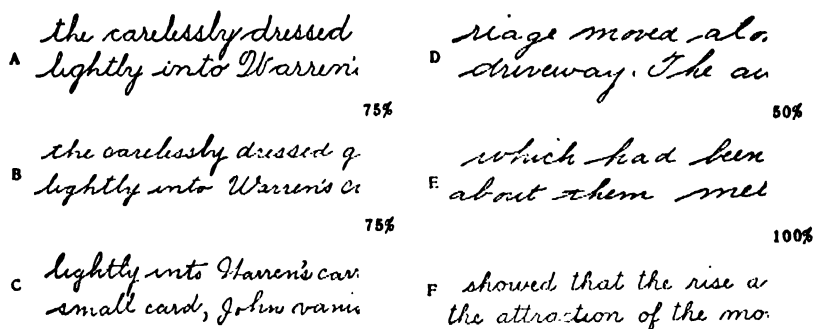 A
the carelessly dressed
lightly into Warren's
75%
B
the carelessly dressed g
lightly into Warren's ca
75%
C
lightly into Warren's carr
small card, John vanis
D
riage moved alo
driveway. The au
50%
E
which had been
about them met
100%
F
showed that the rise a
the attraction of the mo